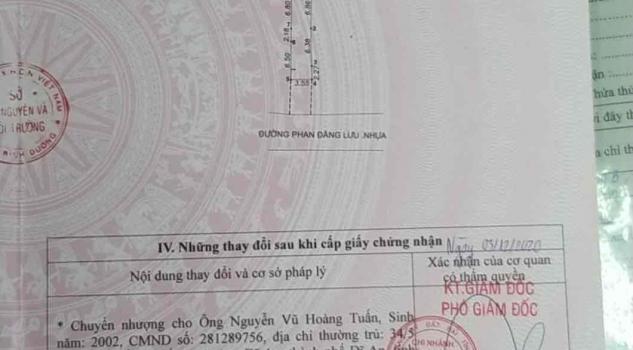 6.80
6.86
2.18
6.38
6.50
2.27
3.55
SỞ
NGUYÊN VÀ
TRƯỜNG
ĐƯỜNG PHAN ĐĂNG LƯU .NHỰA
IV. Những thay đổi sau khi cấp giấy chứng nhận
Ngày 03/12/2020
Nội dung thay đổi và cơ sở pháp lý
Xác nhận của cơ quan
có thẩm quyền
KT.GIÁM ĐỐC
PHÓ GIÁM ĐỐC
* Chuyển nhượng cho Ông Nguyễn Vũ Hoàng Tuấn, Sinh
năm: 2002, CMND số: 281289756, địa chỉ thường trú: 34/5
CHI NHÁNH